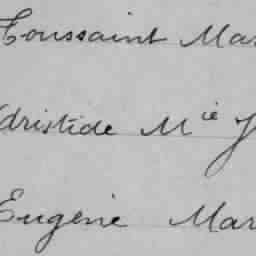 Toussaint Mar
Aristide Mie J
Eugène Mar